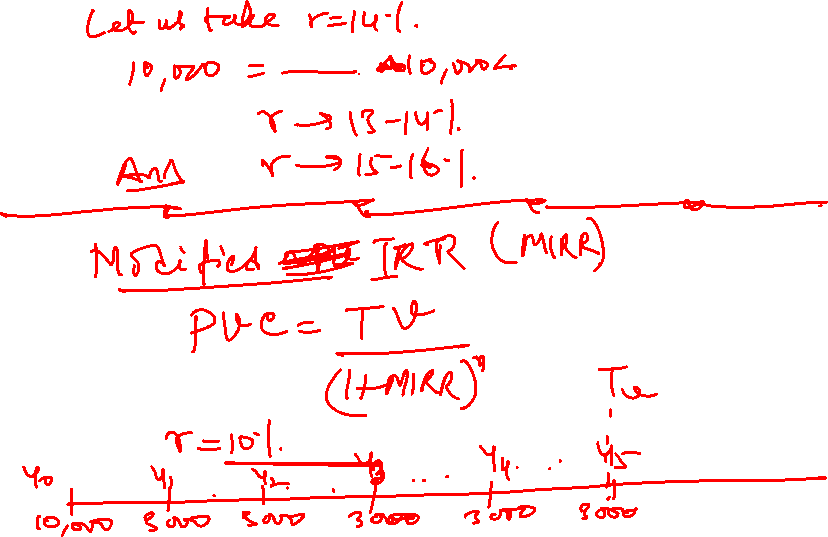 Let us take r=14%.
10,000 = 10,000
r → 13-14%.
Ans r → 15-16%.
Modified IRR (MIRR)
PVC = TV
(1+MIRR)ⁿ
TV
r=10%.
Y0 Y1 Y2 Y3 .... Y4 ... Y5
10,000 3000 3000 3000 3000 3000